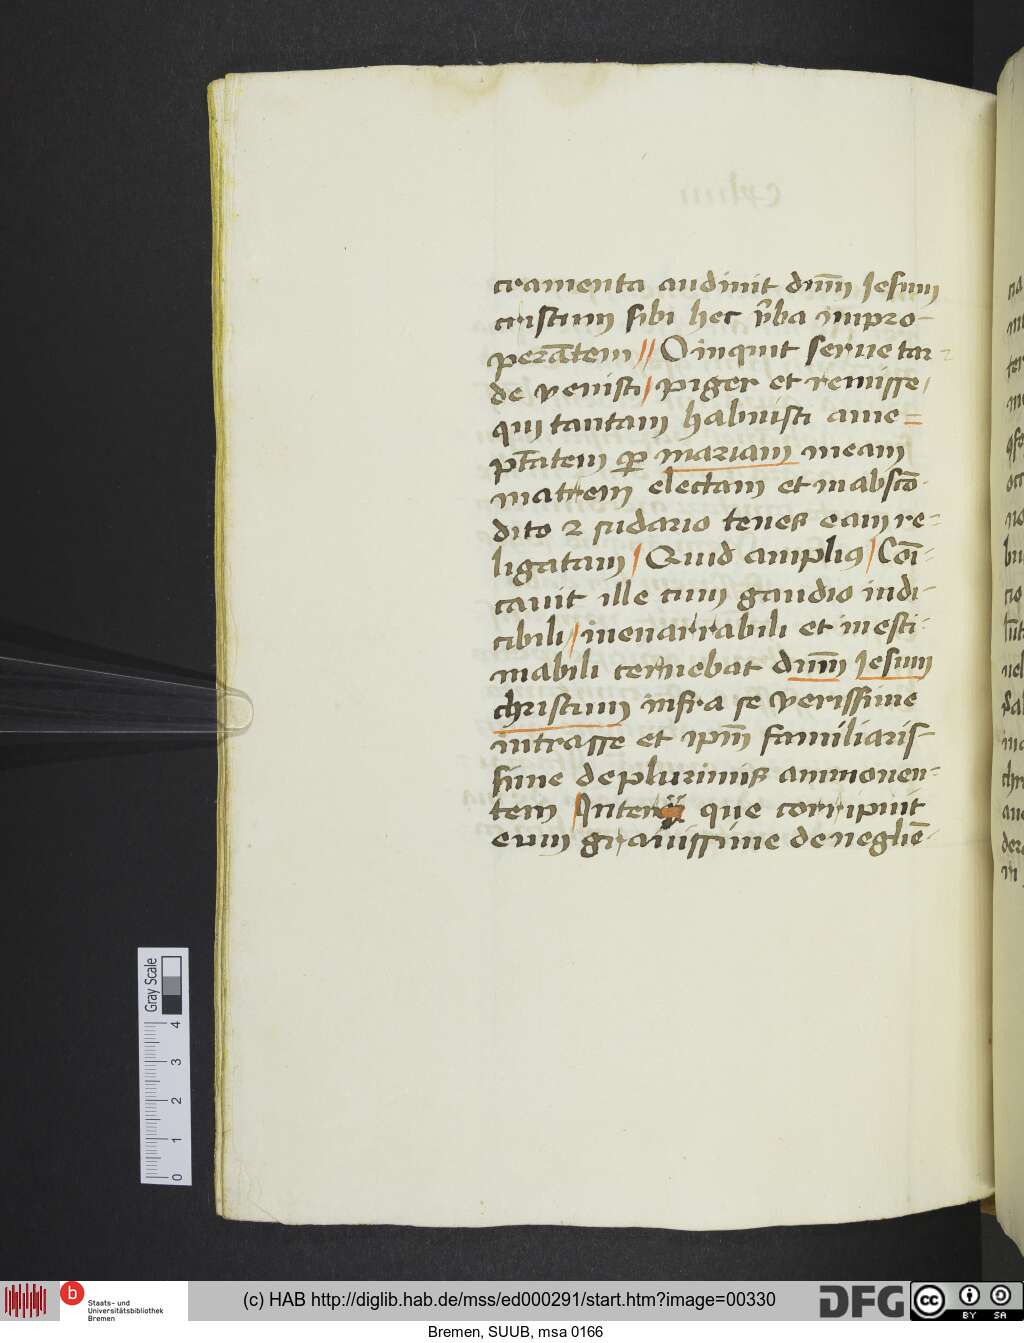 cramenta audiuit dn̄m Jesum
cristum sibi hec v̄ba impro-
perātem // O inquit serue tar-
de venisti / piger et remisse /
qui tantam habuisti ame=
p̄tatem ꝑ mariam meam
matrem electam et in absco-
dito ⁊ sudario tenes eam re-
ligatam / Quid amplius / Com̄-
cauit ille cum gaudio indi-
cibili / inenarrabili et inesti-
mabili cernebat dn̄m Jesum
christum infra se verissime
intrasse et ipm̄ familiaris-
sime de plurimis ammonen-
tem que corripuit
eum grauissime de neglie-
Gray Scale
0 1 2 3 4
b Staats- und
Universitätsbibliothek
Bremen
(c) HAB http://diglib.hab.de/mss/ed000291/start.htm?image=00330
DFG
cc BY SA
Bremen, SUUB, msa 0166